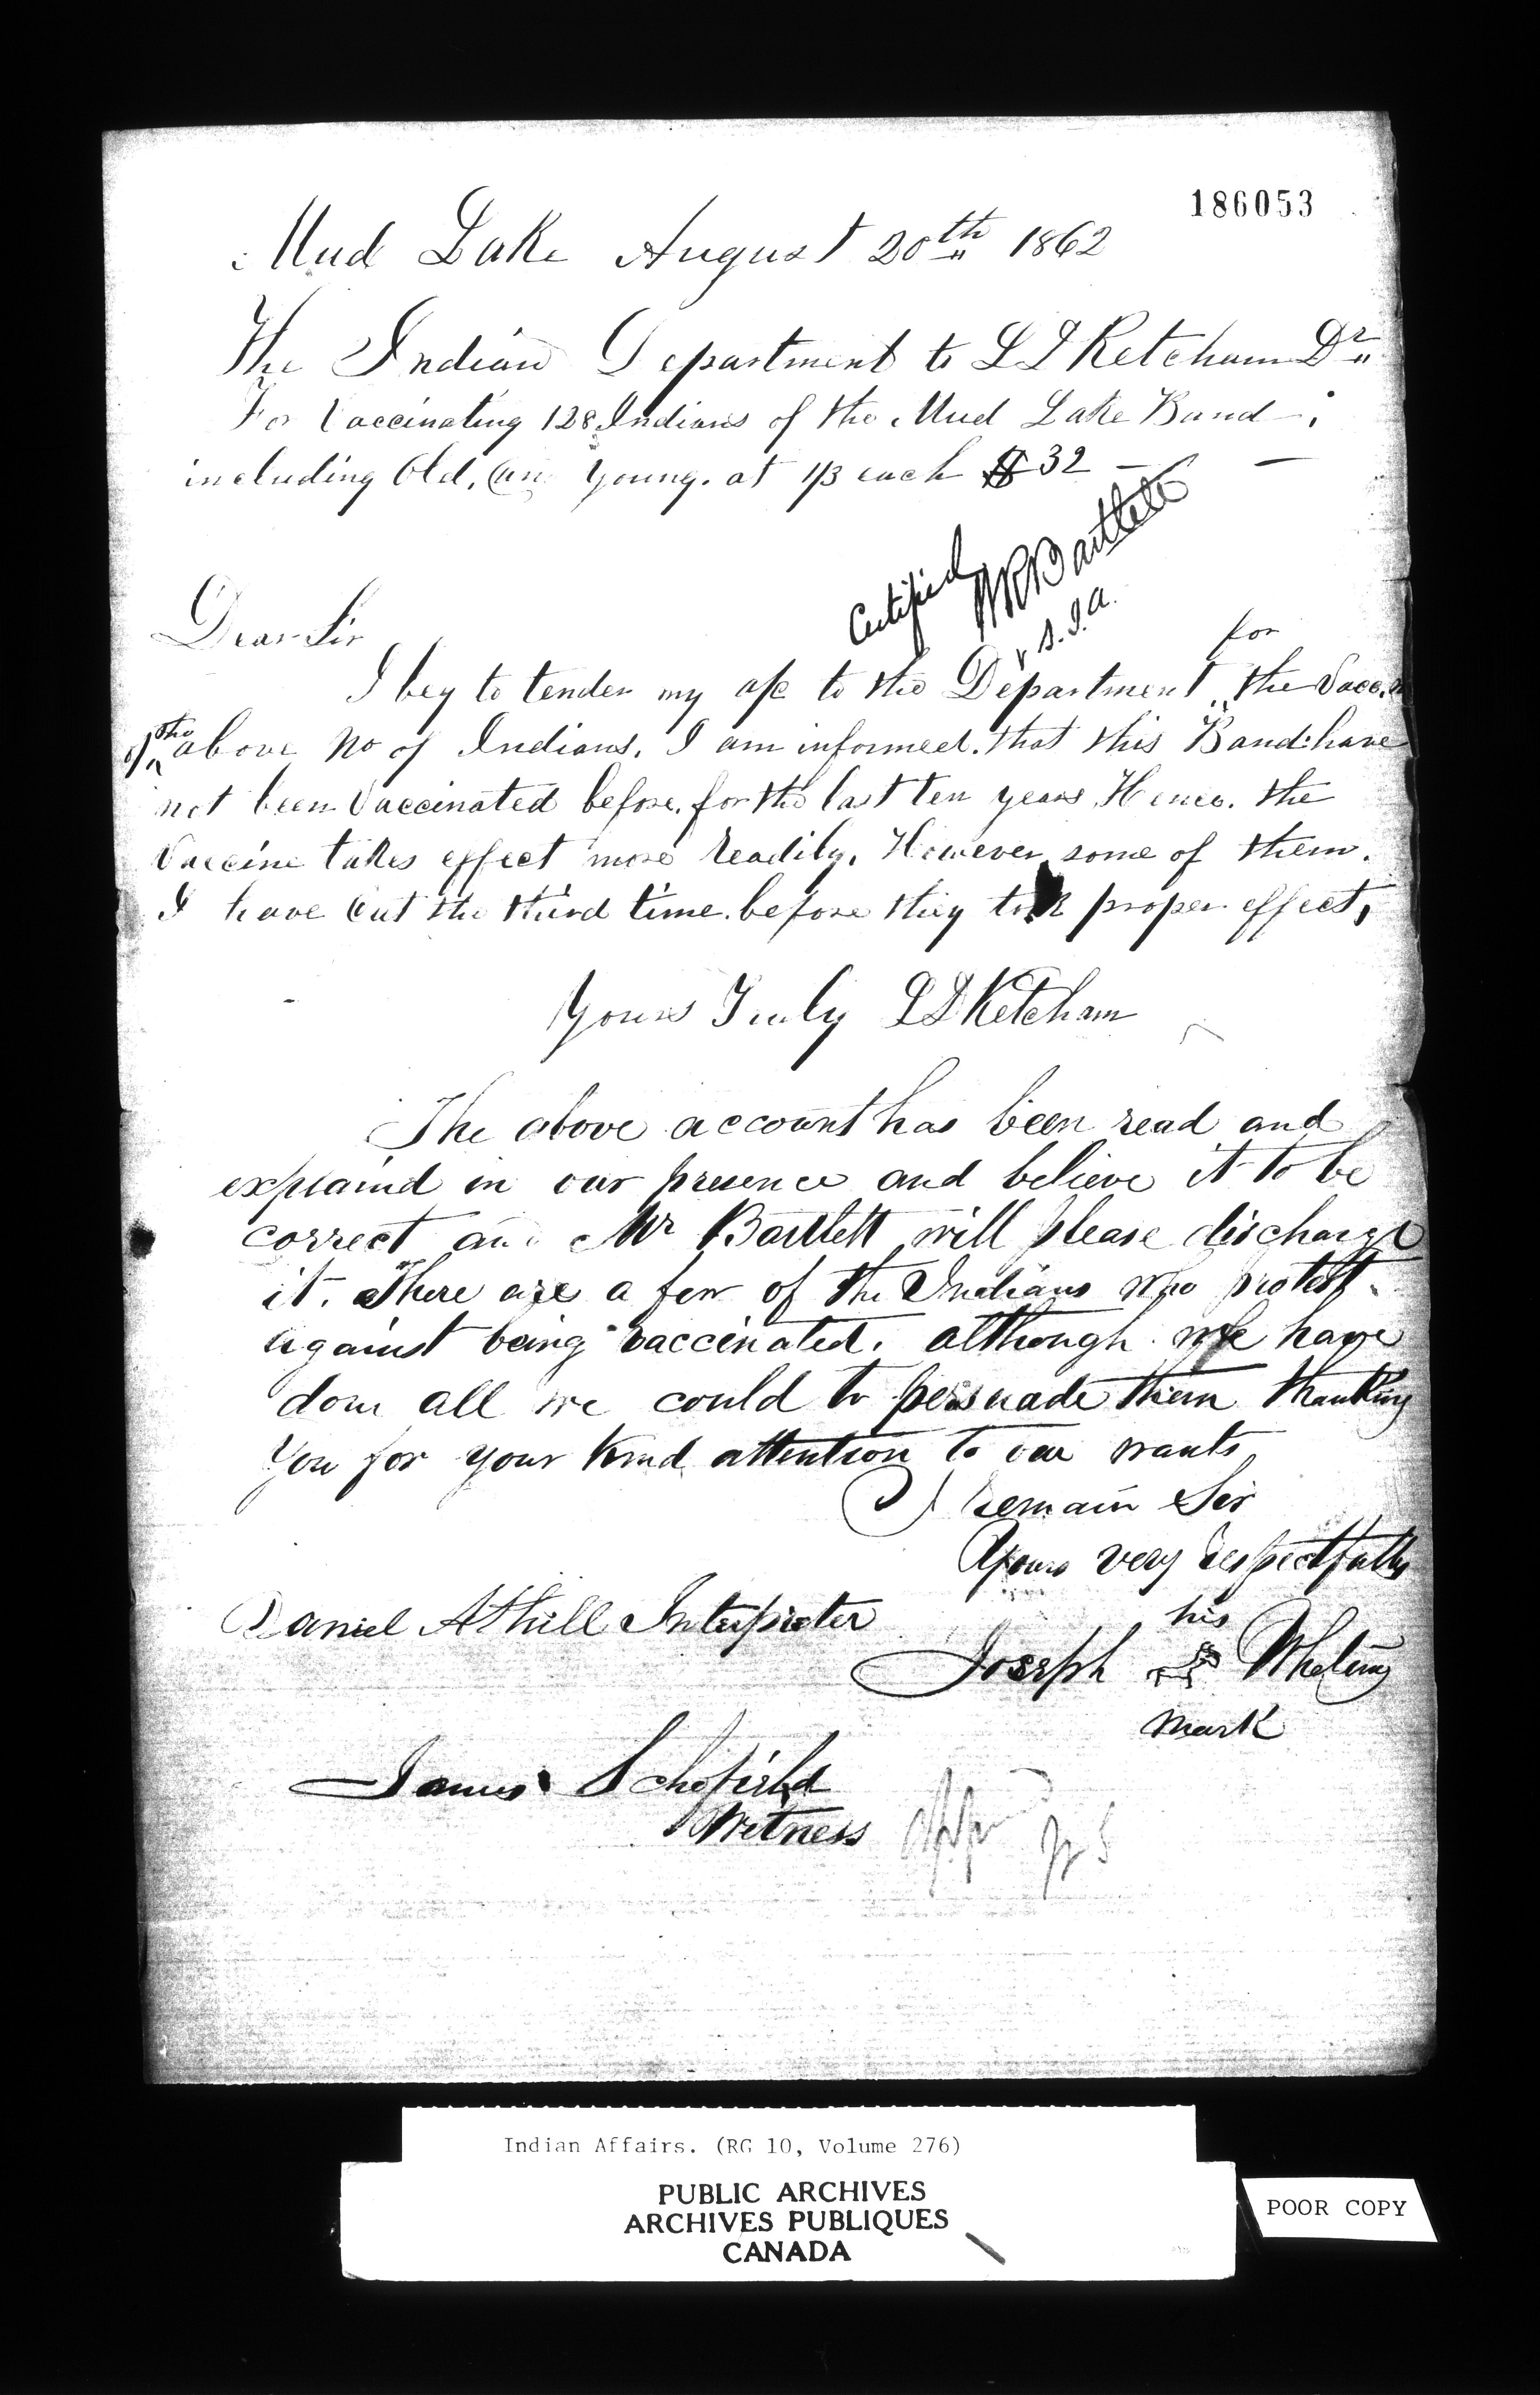 186053
Mud Lake August 20th 1862
The Indian Department to L L Ketcham Dr
For Vaccinating 128 Indians of the Mud Lake Band
including Old, an Young. at 1/3 each $32 —
Certified
W R Bartlett
V. S. I. A.
Dear Sir
for
I beg to tender my a/c to the Department, the Vacc.
of the above No of Indians. I am informed. that this Band have
not been Vaccinated before. for the last ten years. Hence. the
Vaccine takes effect more readily. However some of them.
I have Cut the third time. before they took proper effect,
Yours Truly L L Ketcham
The above account has been read and
explaind in our presence and believe it to be
correct and Mr Bartlett will please discharge
it. There are a few of the Indians who protest
against being vaccinated. although we have
don all we could to persuade them thanking
You for your kind attention to our wants
I remain Sir
Yours very respectfully
Daniel Athill Interpreter
his
Joseph Whetung
mark
James Schofield
Witness
Indian Affairs. (RG 10, Volume 276)
PUBLIC ARCHIVES
ARCHIVES PUBLIQUES
CANADA
POOR COPY